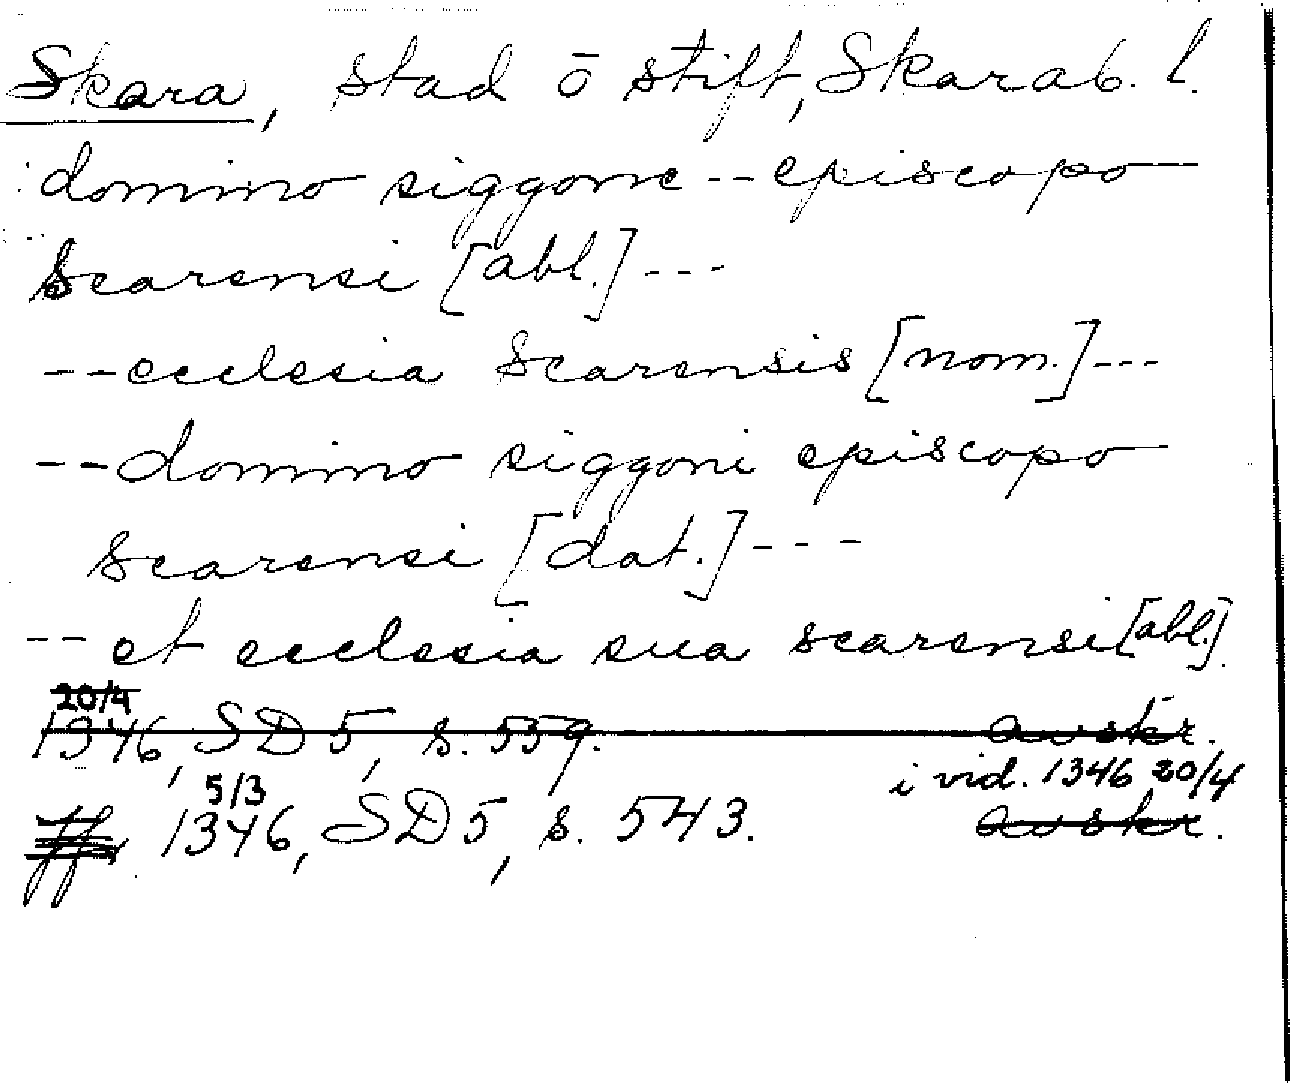 Skara, stad ō stift, Skarab. l.
domino siggone -- episcopo
Scarensi [abl.] ---
-- ecclesia Scarensis [nom.] ---
-- domino siggoni episcopo
Scarensi [dat.] ---
-- et ecclesia sua scarensi [abl.]
20/4
1346, SD 5, s. 559. avskr.
i vid. 1346 20/4
5/3
ff. 1346, SD 5, s. 543. avskr.